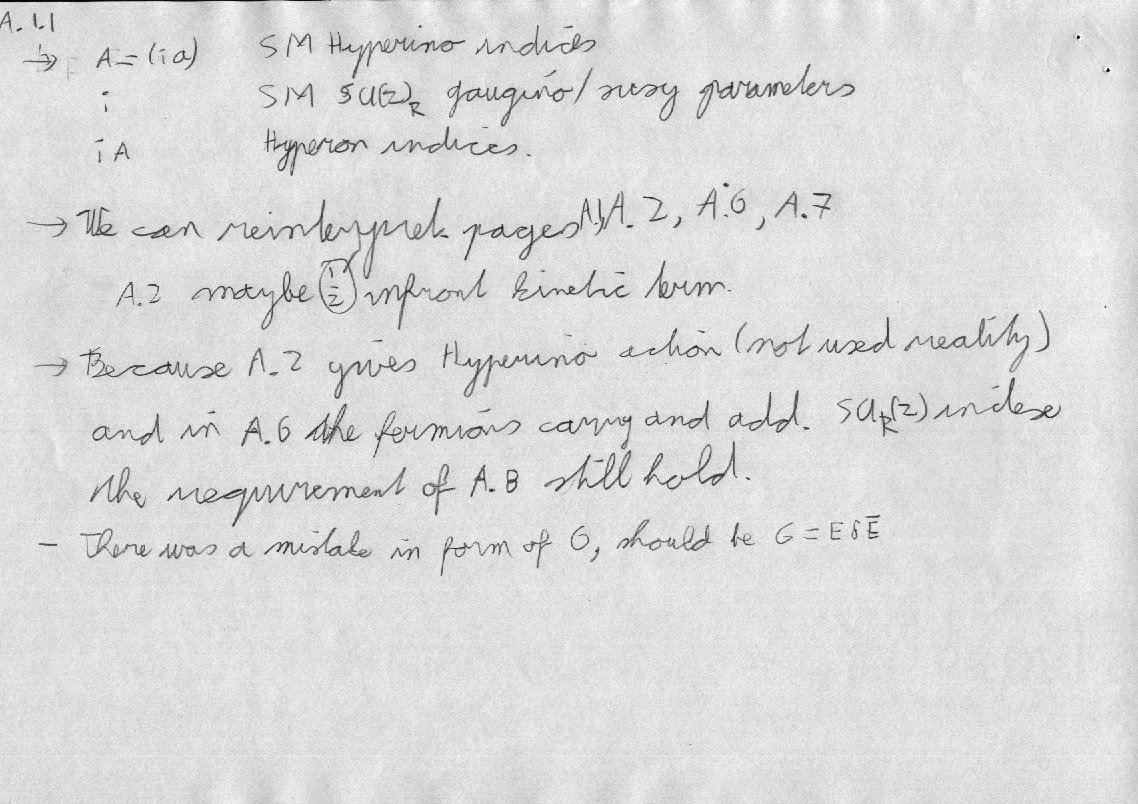 A.1.1
→ A=(ia) SM Hyperino indices
i SM SU(2)_R gaugino/susy parameters
iA Hyperon indices.
→ We can reinterpret pages A.1, A.2, A.6, A.7
A.2 maybe 1/2 infront kinetic term.
→ Because A.2 gives Hyperino action (not used reality)
and in A.6 the fermions carry and add. SU_R(2) indexe
the requirement of A.8 still hold.
- There was a mistake in form of G, should be G = E δ Ē